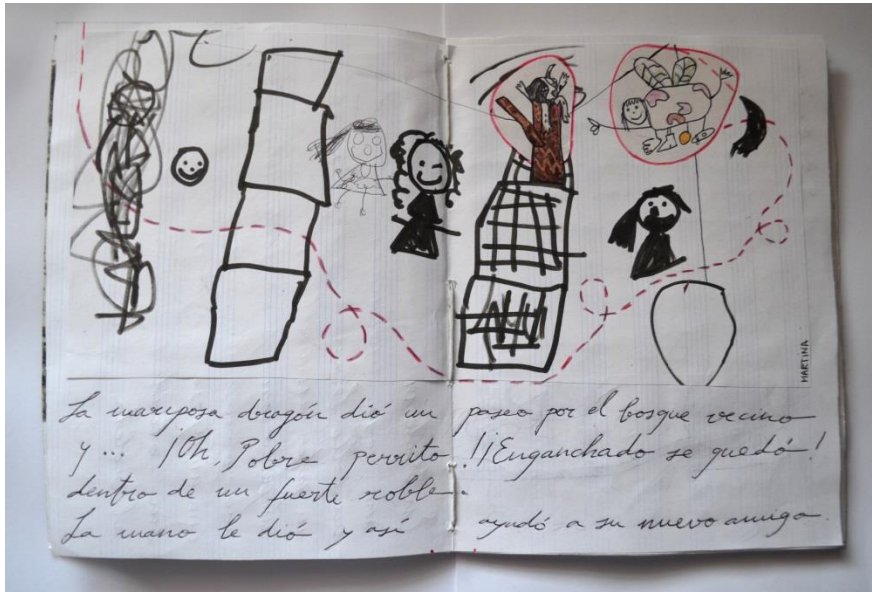 MARTINA
La mariposa dragón dió un paseo por el bosque vecino
y... ¡Oh, Pobre perrito!¡Enganchado se quedó!
dentro de un fuerte roble.
La mano le dió y así ayudó a su nuevo amigo.